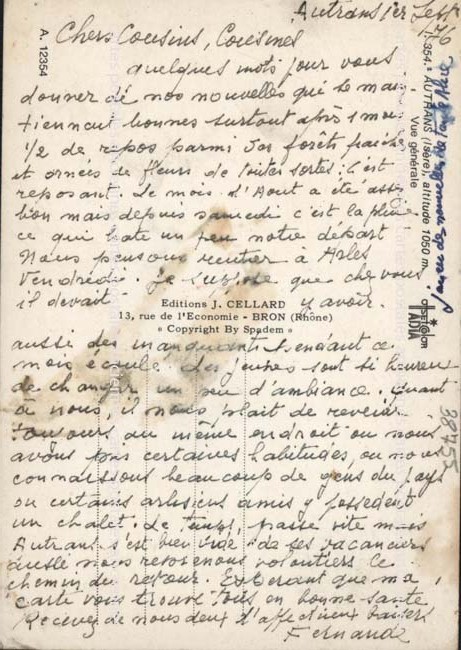 Autrans 1er Sept
76
Chers Cousins, Cousines
quelques mots pour vous
donner de nos nouvelles qui se main-
tiennent bonnes surtout après 1 mois
1/2 de repos parmi ses forêts fraiches
et ornées de fleurs de toutes sortes; c'est
reposant. Le mois d'Aout a été assez
bon mais depuis samedi c'est la pluie
ce qui hate un peu notre départ
Nous pensons rentrer à Arles
Vendredi. Je suppose que chez vous
il devait y avoir
aussi des manquants pendant ce
mois écoulé. Les jeunes sont si heureux
de changer un peu d'ambiance. Quant
à nous, il nous plait de revenir
toujours au même endroit ou nous
avons pris certaines habitudes, ou nous
connaissons beaucoup de gens du pays
ou certains artésiens amis y possèdent
un chalet. Le temps passe vite mais
Autrans s'est bien vidé de ses vacanciers
aussi nous reprenons volontiers le
chemin du retour. Espérant que ma
carte vous trouve tous en bonne santé
Recevez de nous deux d'affectueux baisers
Fernande
A. 12354
354. AUTRANS (Isère), altitude 1050 m.
Vue générale
de nouvelles de
Editions J. CELLARD
13, rue de l'Economie - BRON (Rhône)
« Copyright By Spadem »
COLLECTION
ADIA
38455